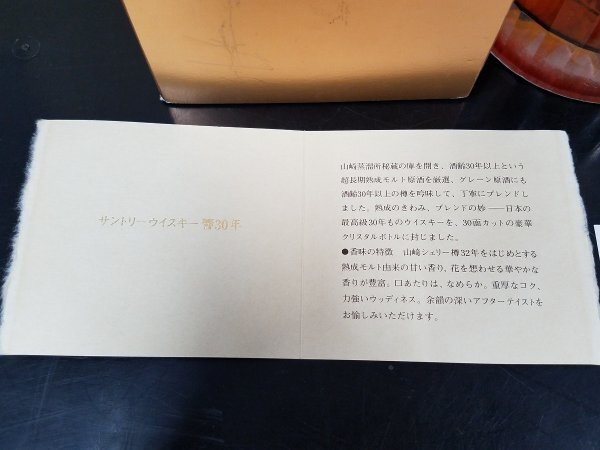 サントリーウイスキー 響30年
山崎蒸溜所秘蔵の庫を開き、酒齢30年以上という
超長期熟成モルト原酒を厳選、グレーン原酒にも
酒齢30年以上の樽を吟味して、丁寧にブレンドし
ました。熟成のきわみ、ブレンドの妙――日本の
最高級30年ものウイスキーを、30面カットの豪華
クリスタルボトルに封じました。
●香味の特徴 山崎シェリー樽32年をはじめとする
熟成モルト由来の甘い香り、花を想わせる華やかな
香りが豊富。口あたりは、なめらか。重厚なコク、
力強いウッディネス。余韻の深いアフターテイストを
お愉しみいただけます。